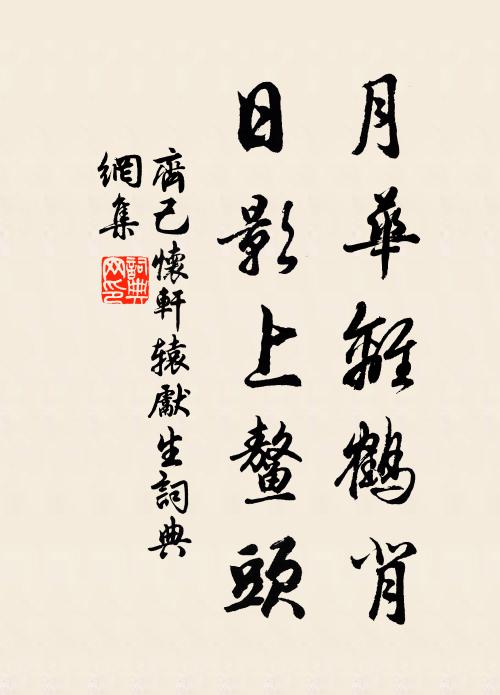 月華離鶴背
日影上鰲頭
齊己懷軒轅獻生詞典
網集
詞典
网印